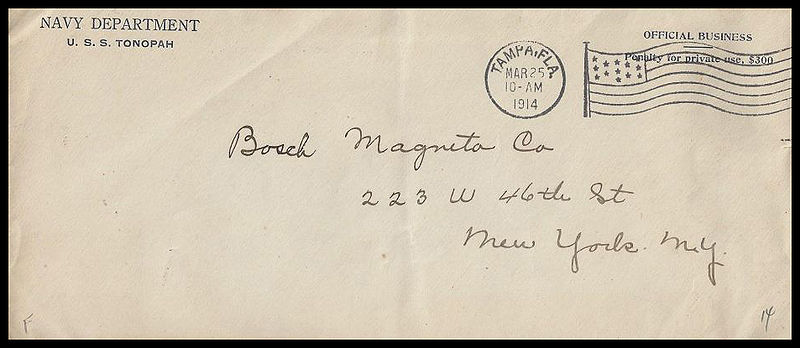 NAVY DEPARTMENT
U. S. S. TONOPAH
OFFICIAL BUSINESS
Penalty for private use, $300
TAMPA, FLA.
MAR 25
10-AM
1914
Bosch Magneto Co
223 W 46th St
New York. N.Y.
F
14